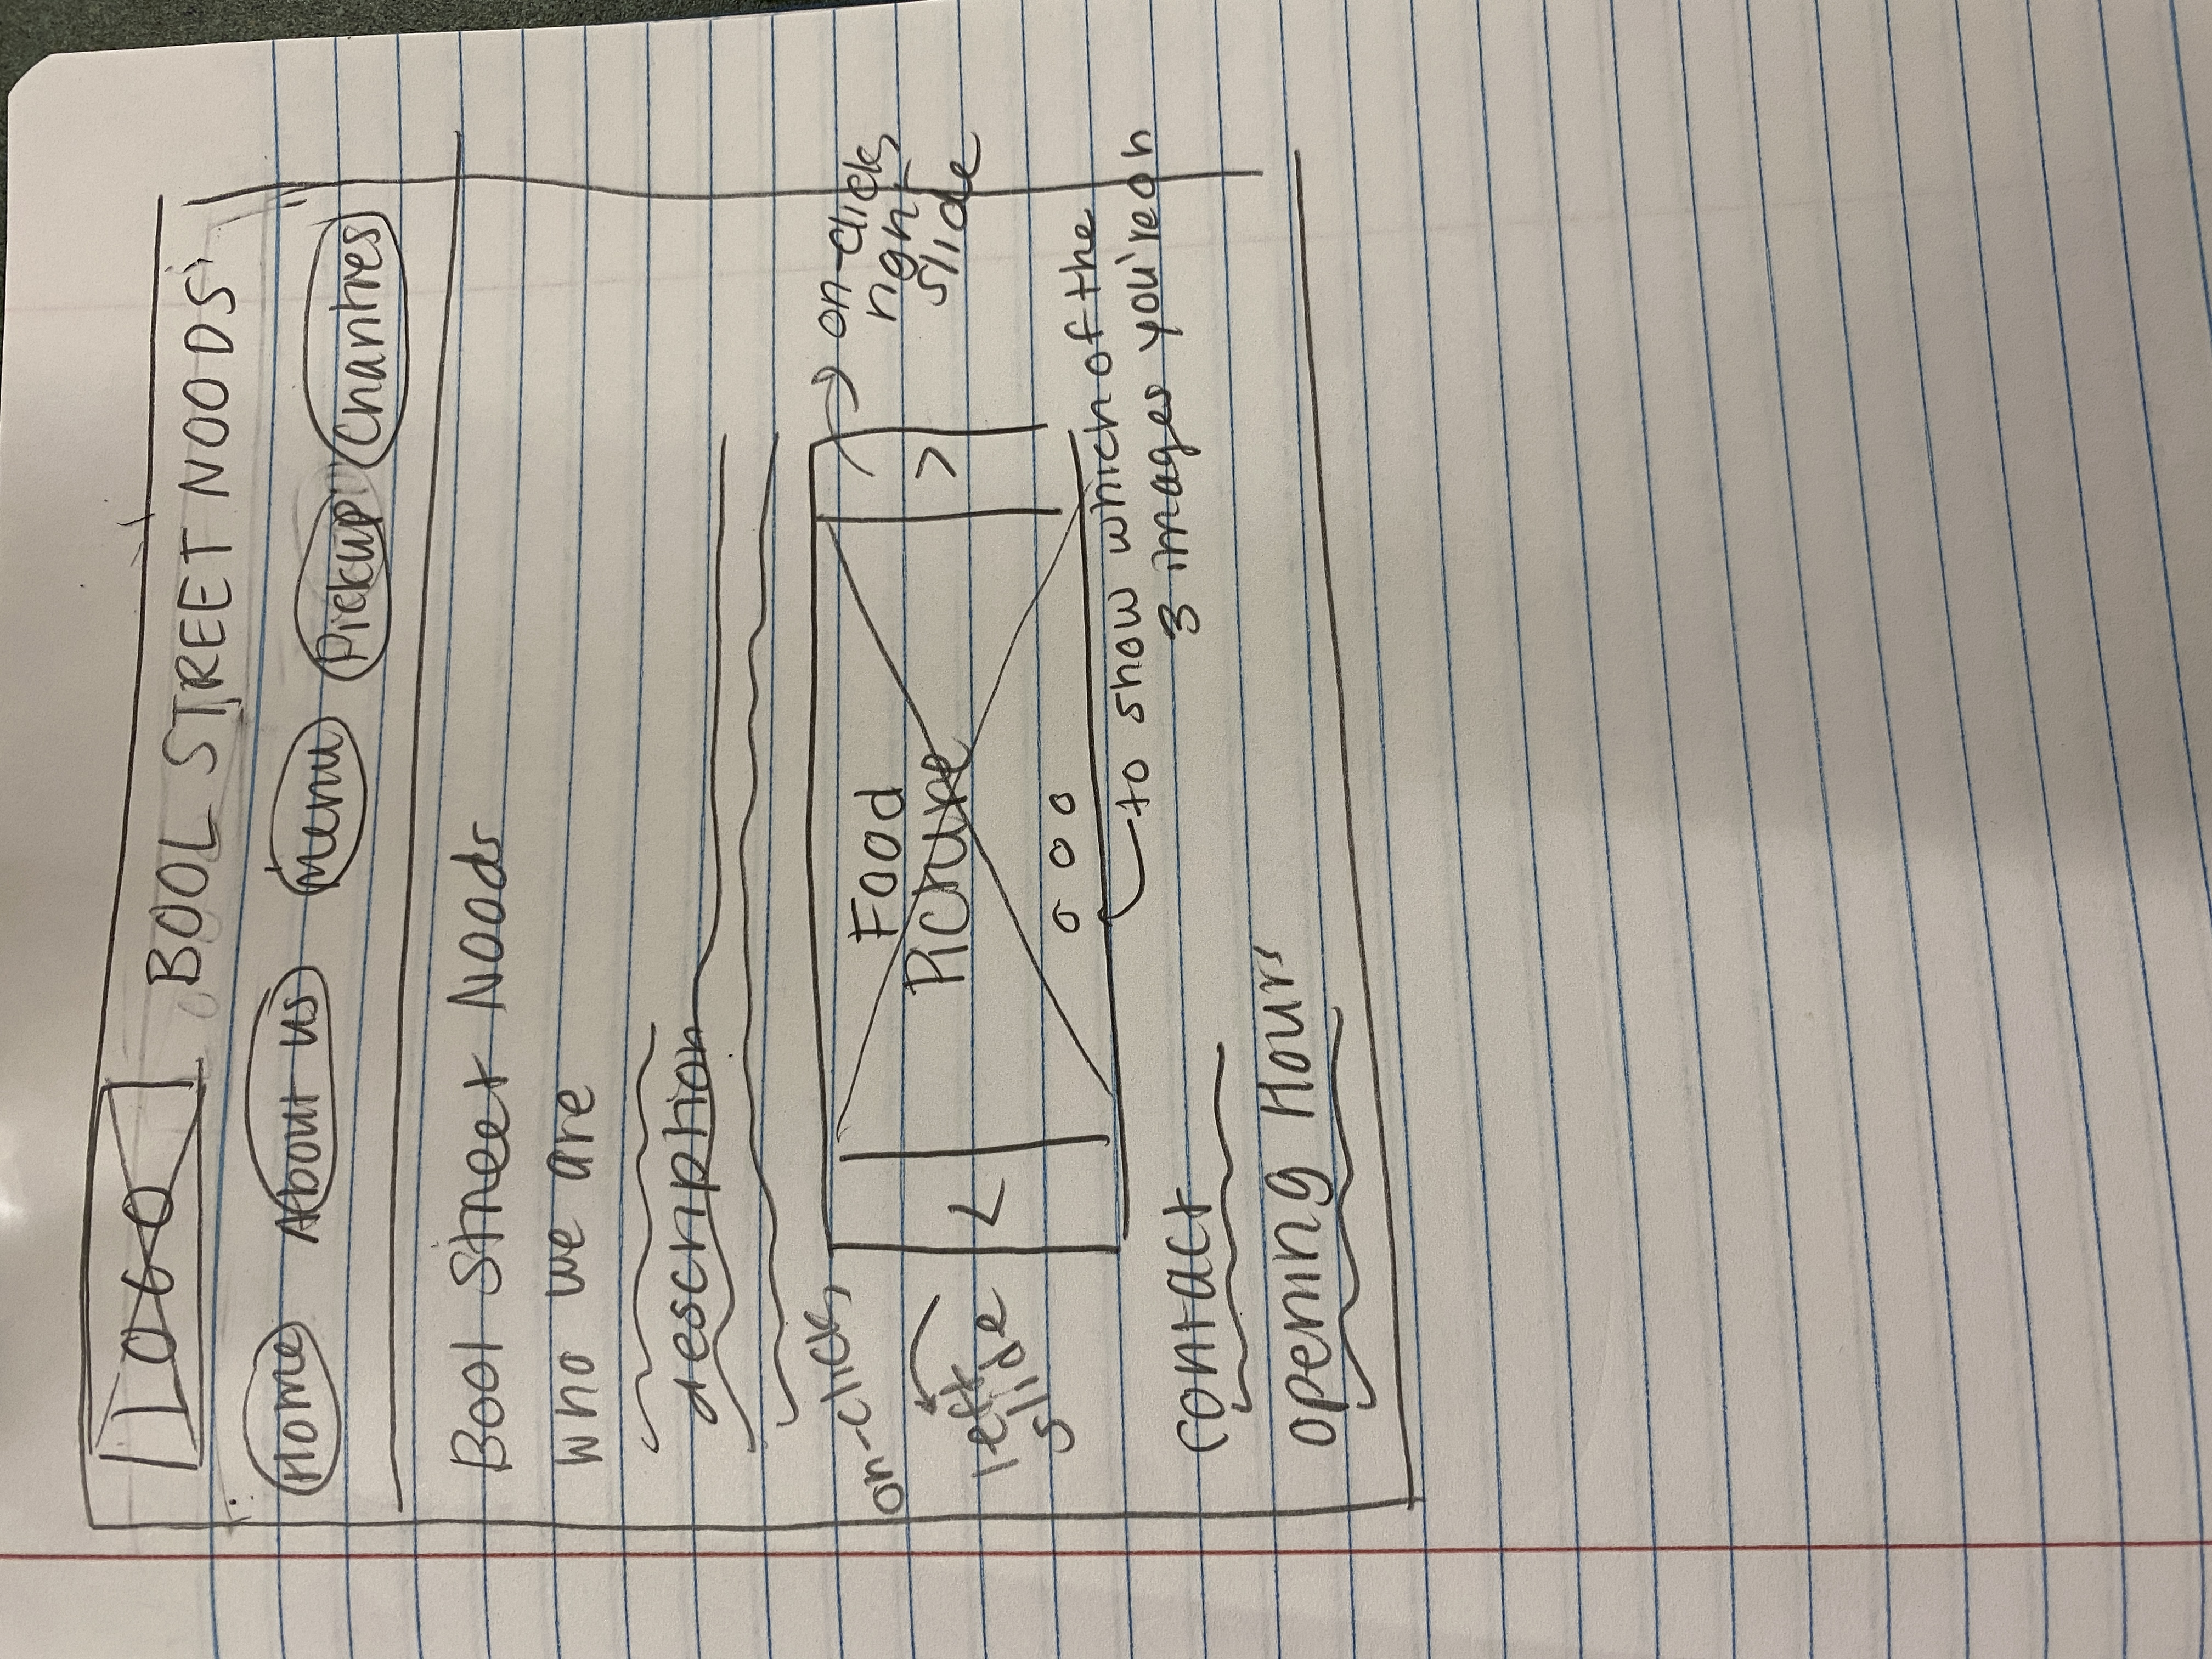 LOGO
BOOL STREET NOODS
Home About us Menu Pickup Charities
Bool Street Noods
who we are
description
on-click
left
slide
<
Food
Picture
>
on-click
right
slide
to show which of the
3 images you're on
contact
opening Hours